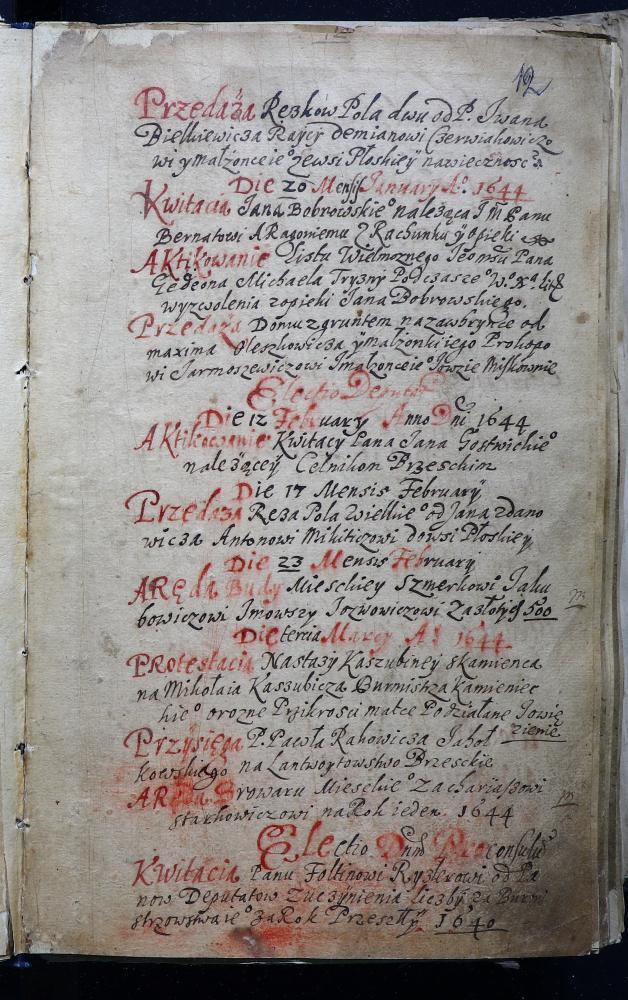 12
Przedaża Rezkow Pola dwu od P. Iwana
Bielkiewicza Raycy demianowi Czerwiakowiczo
wi y małżonce ie° zewsi Płoskiey nawieczność
Die 20 Mensis January A°. 1644
Kwitacia Jana Bobrowskie° należąca JM Panu
Bernatowi ARagoniemu z Rachunku y opieki
AKtikowanie Listu Wielmoznego Jeomści Pana
Gedeona Michaela Tryzny Podczasze° W° X° Lit
wyzwolenia zopieki Jana Dobrowskiego.
Przedaża Domu z gruntem nazawbrycze od
maxima Oleszkowicza y małżonki iego Prokopo
wi Jarmoszewiczowi Jmałzonce ie° Jowzie Miskownie
Electio Deputat
Die 12 February Anno Dni 1644
AKtikowanie Kwitacy Pana Jana Gostwickie°
należącey Celnikom Brzeskim
Die 17 Mensis February
Przedaża Reza Pola Wielkie° od Jana zdano
wicza Antonowi Mikiticzowi dowsi Płoskiey
Die 23 Mensis February
ARęda Budy Mieyskiey Szmerkowi Jaku
bowiczowi Jmowszy Jozwowiczowi Zazłotyg 500
Die tercia Marcy A° 1644
PRotestacia Nastazy Kaszubiney skamienca
na Mikołaia Kaszubicza Burmistrza Kamieniec
kie° orozne Przikrosci matce Podziałane Jowię
zienie
Przysięga P. Pawła Rakowicza Jaboł
kowskiego na Lantwoytowstwo Brzeskie
ARęda Browaru Mieyskie° Zachariaszowi
starkowiczowi naRok ieden 1644
Electio Dnm Proconsulu
Kwitacia Panu Foltinowi Ryzlerowi od Pa
now Deputatow Zuczynienia liczby za Burmi
strzowstwa ie° za Rok Przeszły 1640